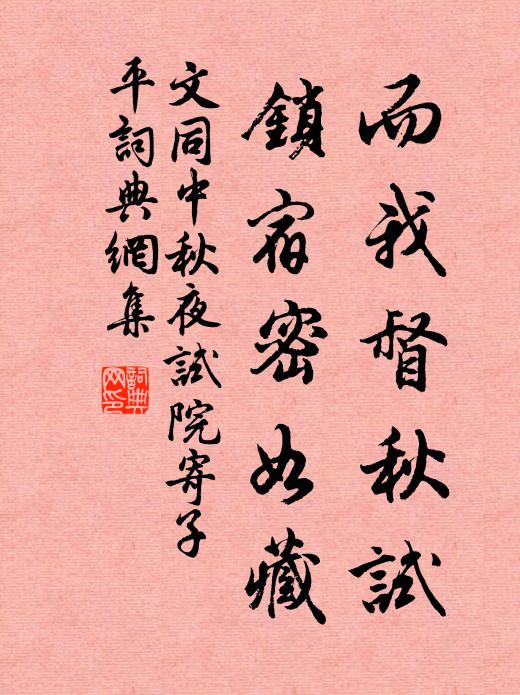 而我督秋試
鎖宿密如藏
文同中秋夜試院寄子
平詞典網集
詞典
网印